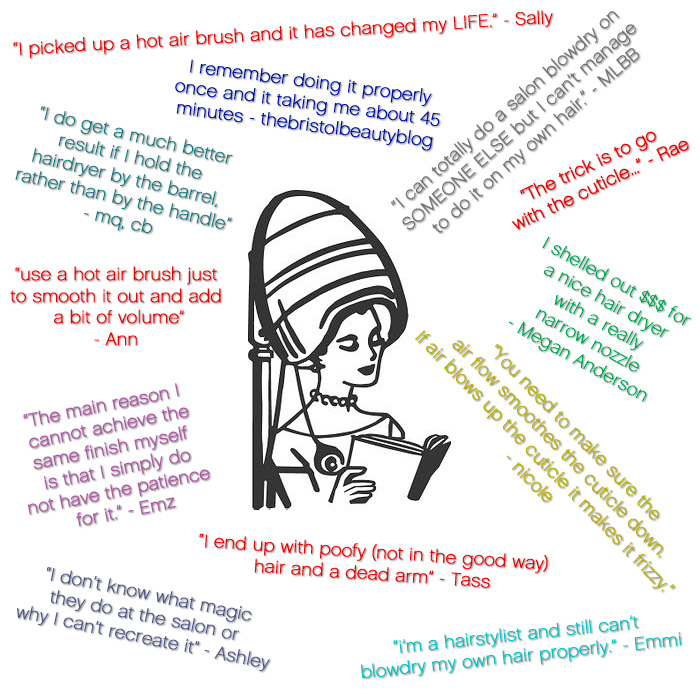 "I picked up a hot air brush and it has changed my LIFE." - Sally
I remember doing it properly
once and it taking me about 45
minutes - thebristolbeautyblog
"I can totally do a salon blowdry on
SOMEONE ELSE but I can't manage
to do it on my own hair." - MLBB
"I do get a much better
result if I hold the
hairdryer by the barrel,
rather than by the handle"
- mq, cb
"The trick is to go
with the cuticle..." - Rae
"use a hot air brush just
to smooth it out and add
a bit of volume"
- Ann
I shelled out $$$ for
a nice hair dryer
with a really
narrow nozzle
- Megan Anderson
"You need to make sure the
air flow smoothes the cuticle down.
If air blows up the cuticle it makes it frizzy."
- nicole
"The main reason I
cannot achieve the
same finish myself
is that I simply do
not have the patience
for it." - Emz
"I end up with poofy (not in the good way)
hair and a dead arm" - Tass
"I don't know what magic
they do at the salon or
why I can't recreate it" - Ashley
"i'm a hairstylist and still can't
blowdry my own hair properly." - Emmi